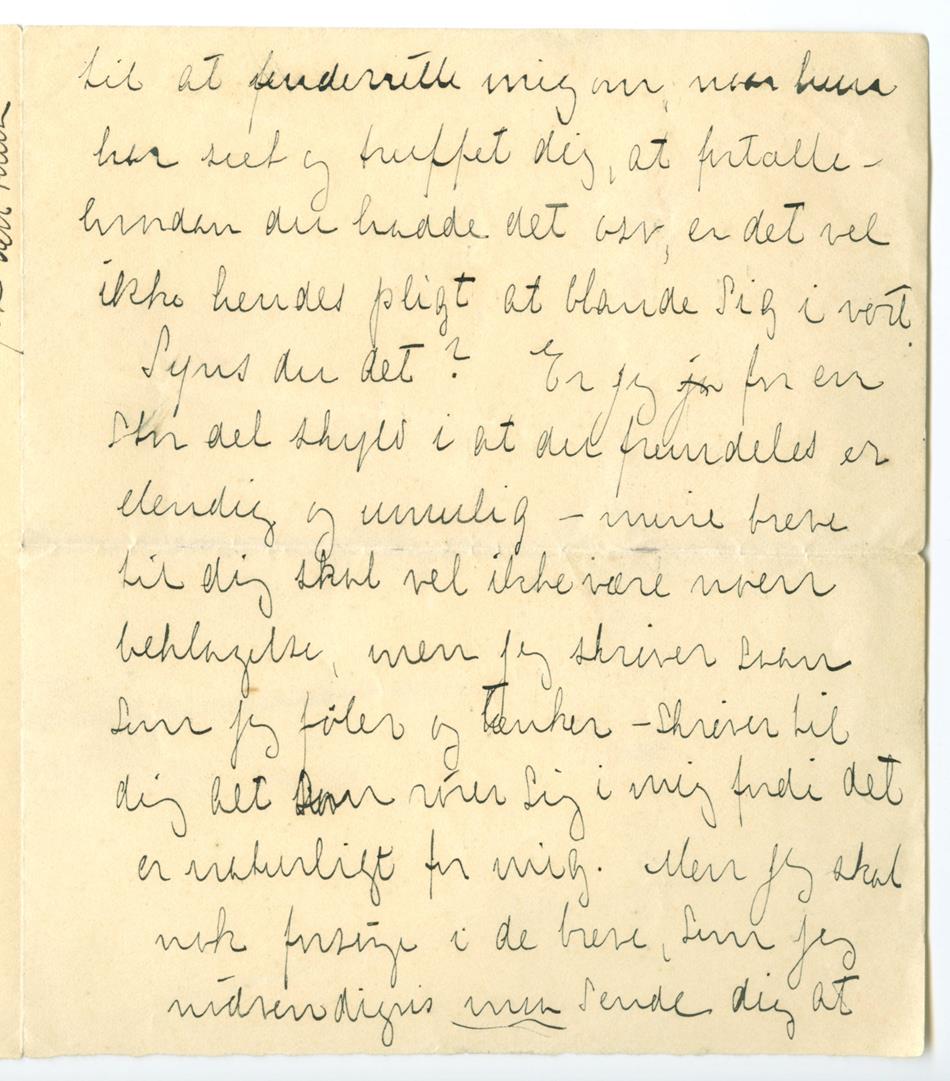 til at underrette mig om, naar hun
har seet og truffet dig, at fortælle -
hvordan du hadde det osv, er det vel
ikke hendes pligt at blande sig i vort.
Synes du det? Er jeg for en
stor del skyld i at du fremdeles er
elendig og umulig - mine breve
til dig skal vel ikke være noen
beklagelse, men jeg skriver saan
som jeg føler og tænker - skriver til
dig alt som rører sig i mig fordi det
er naturligt for mig. Men jeg skal
nok forsøge i de breve, som jeg
nødvendigvis maa sende dig at